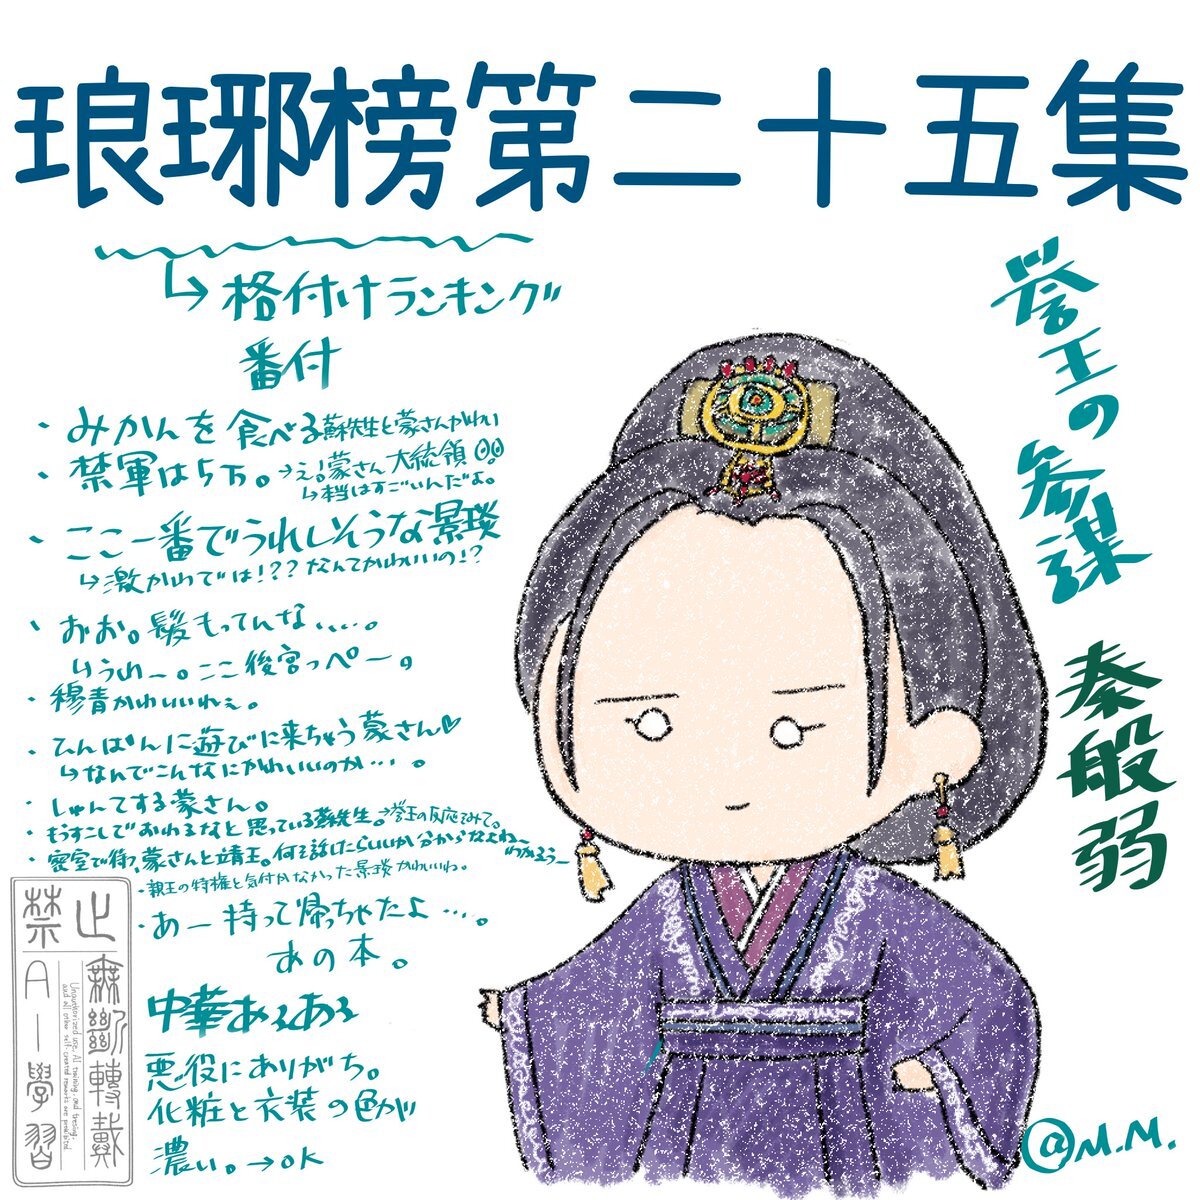 琅琊榜第二十五集
↳格付けランキング
番付
・みかんを食べる蘇先生と蒙さんかわいい
・禁軍は5万。→え!蒙さん大統領
↳本当はすごいんだよ。
・ここ一番でうれしそうな景琰
↳激かわでは!??なんてかわいいの!?
・おお。髪もってんな、、、、。
りうれー。ここ後宮っぺー。
・穆青かわいいねぇ。
・ひんぱんに遊びに来ちゃう蒙さん♡
↳なんでこんなにかわいいのか…。
・しゅんてする蒙さん。
・もうすこしでおわるなと思っている蘇先生。→誉王の反応をみてる。
・密室で待つ蒙さんと靖王。何を話したらいいか分からなよねーわかるぅー
・親王の特権と気付かなかった景琰かわいいね。
・あー持って帰っちゃたよ…。
あの本。
中華あるある
悪役にありがち。
化粧と衣装の色が
濃い。→OK
誉王の参謀
秦般弱
@M.M.
禁止
AI學習
無斷轉載
Unauthorized use, AI training, and tracing,
and all other self-created remarks are prohibited.